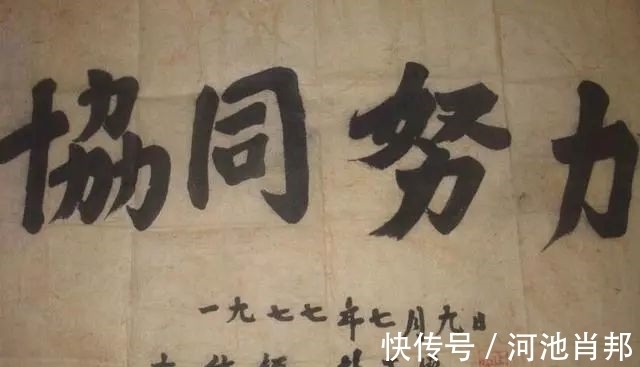 協同努力
一九七七年七月九日
快传号 / 河池肖邦